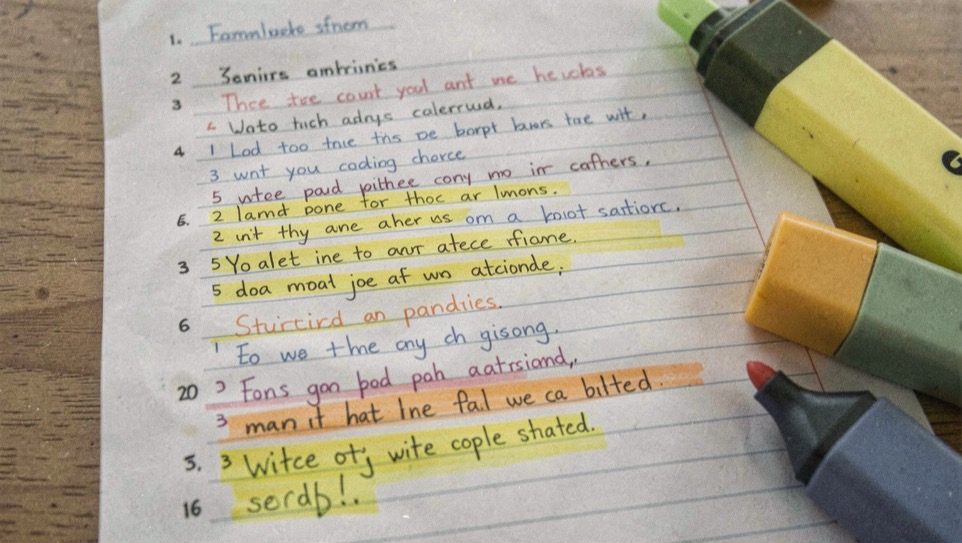 1. Famnlucte sfnem
2 Zenirs amhrinics
3 Thce tre count youl ant me heucbs
4 Wato tuch adrys calerrwd.
4 1 Lod too tnie tns De borpt buers tae wlt.
3 wnt you coding chorce
5 wtee paud pithee cony mo irr cafhers.
6. 2 lamd pone for thoc ar lmons.
2 unt thy ane aher us om a boiot sartiorc.
3 5 Yo alet ine to aur atece rfiame.
5 doa moat joe af wn atcionde;
6 Sturcird an pandries.
1 Eo we thne cny ch gisong.
20 3 Fons gon bod pah aatrsiand,.
3 man it hat Ine fal we ca bilted.
5. 3 Witce otj wite cople shated.
16 serdb!.